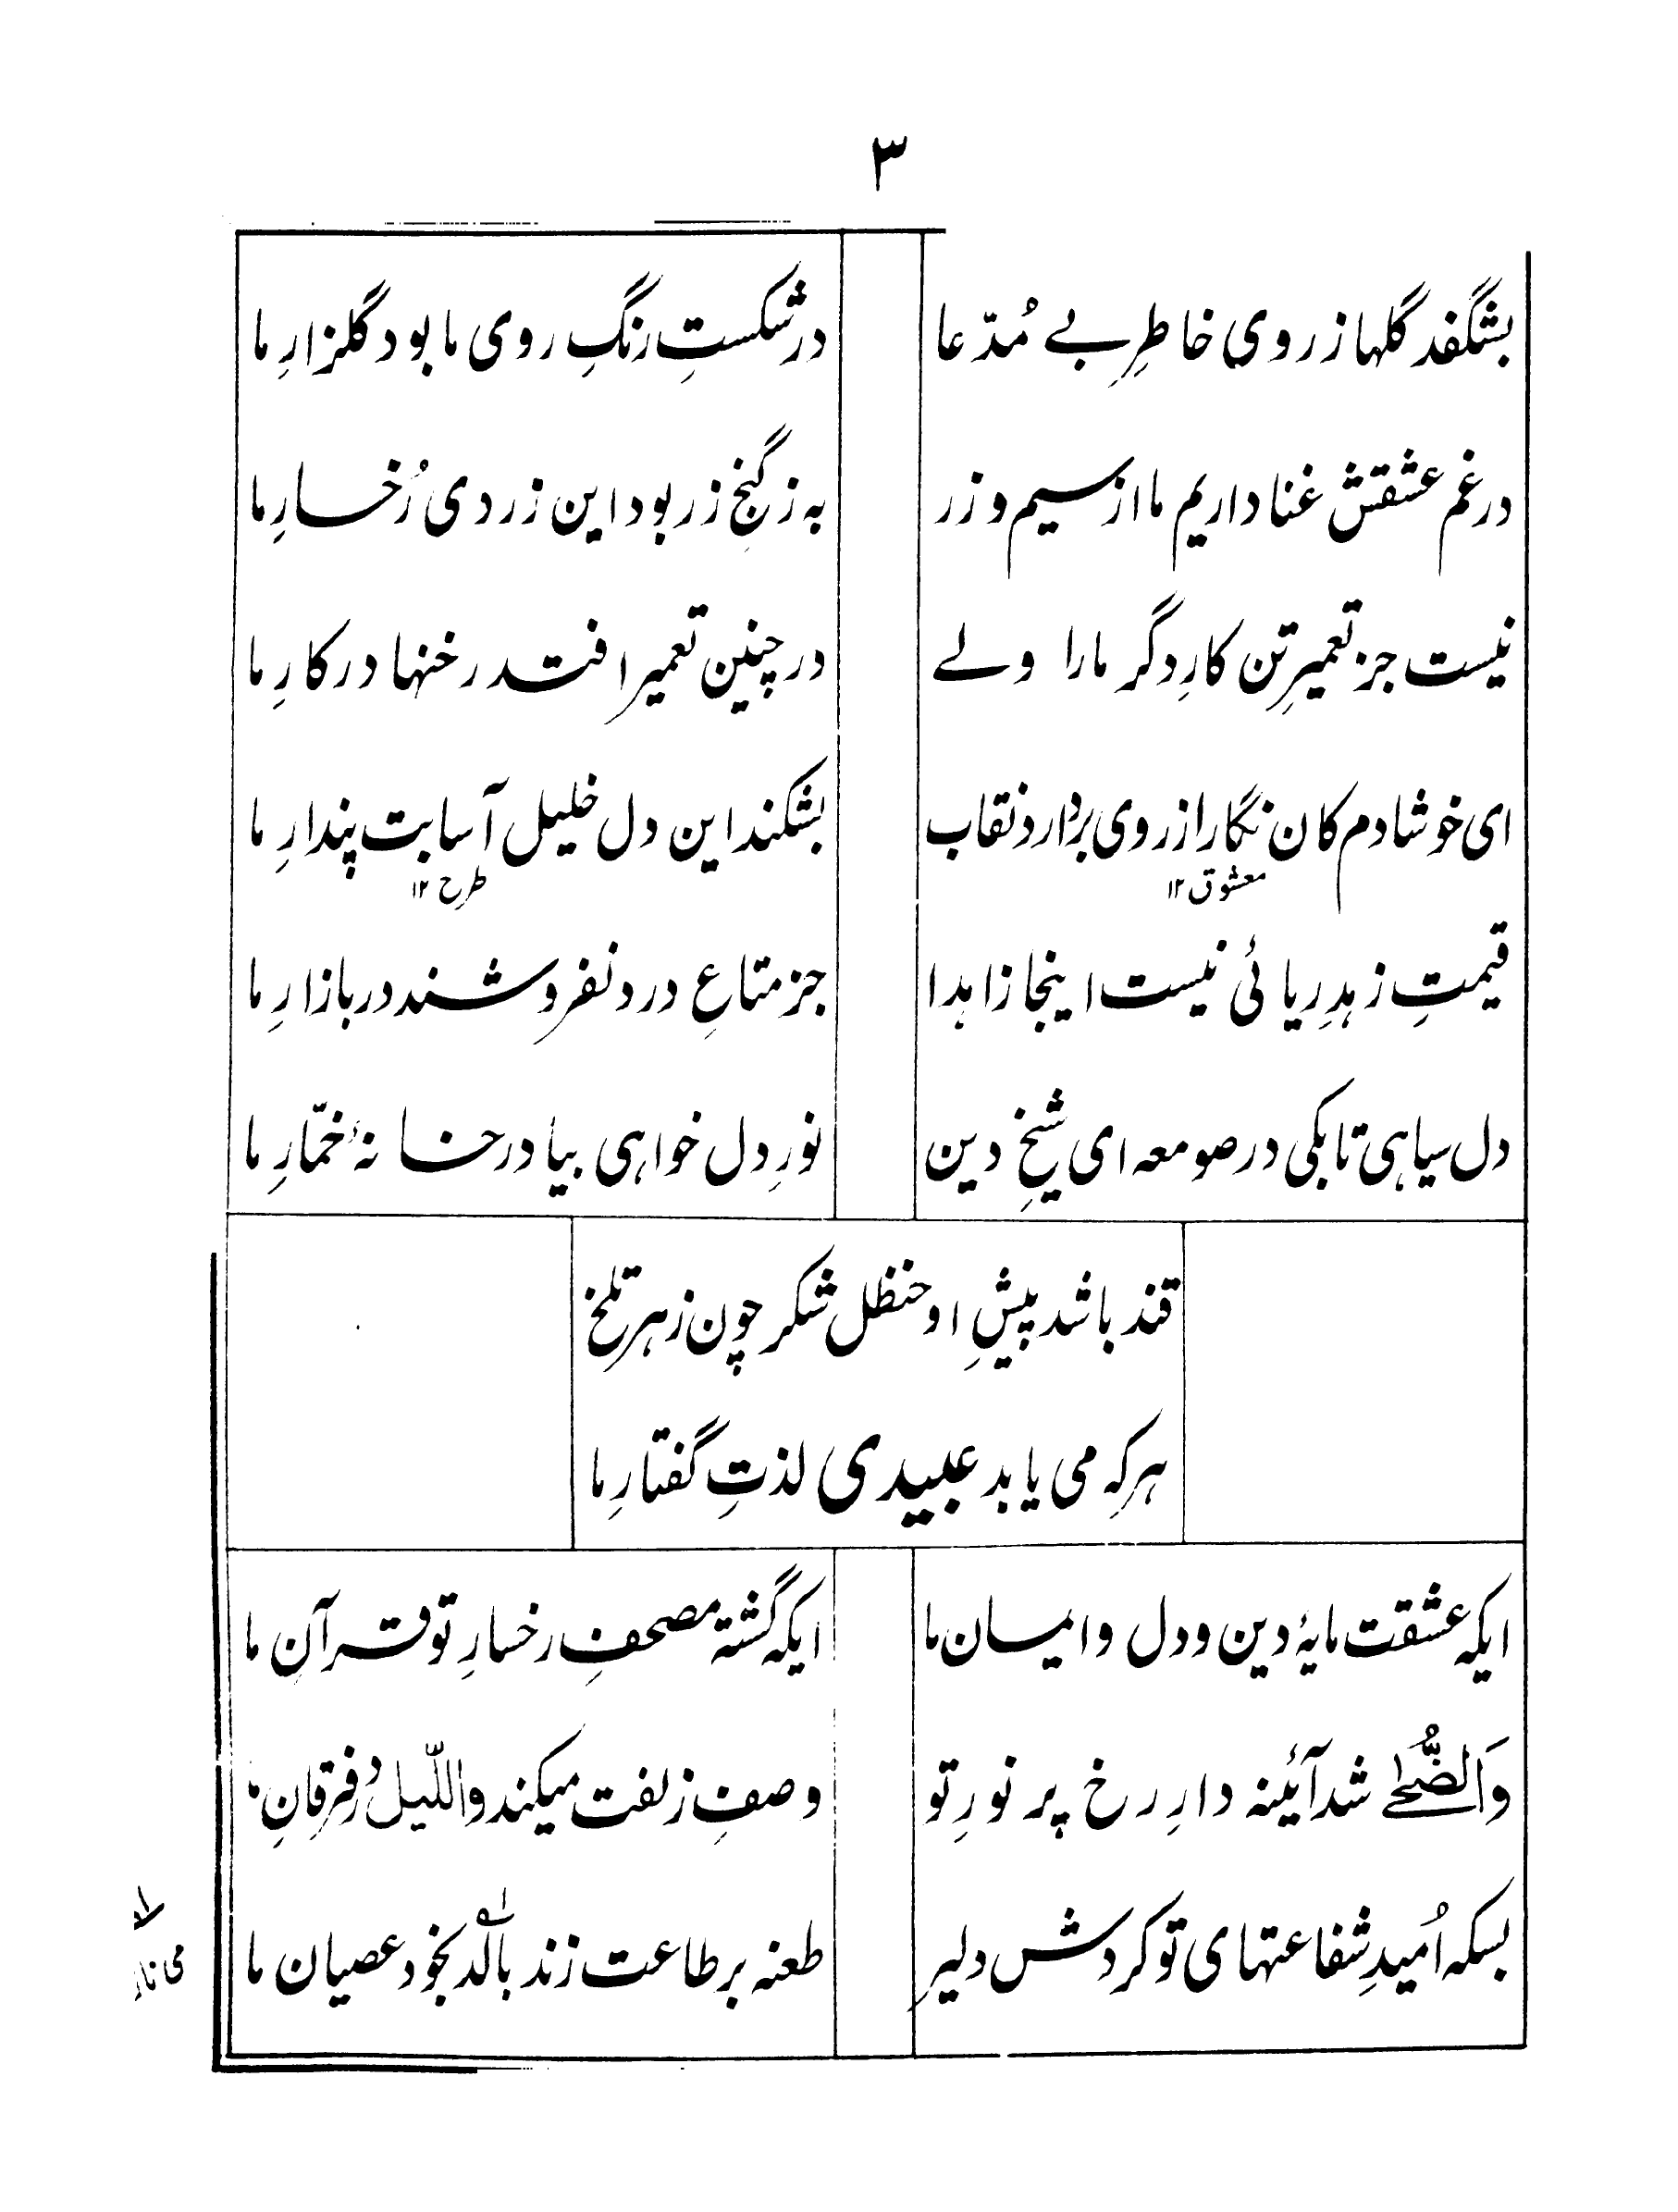 ۳
بشگفد گلها ز روی خاطرِ بے مُدّعا
در شکستِ رنگِ روی ما بود گلزارِ ما
در غمِ عشقش غنا داریم ما از سیم و زر
به ز گنجِ زر بود این زردی رُخسارِ ما
نیست جز تعمیرِ تن کارِ دگر ما را ولے
در چنین تعمیر افتد رخنها در کارِ ما
ای خوشا دم کان نگارا ز روی بردارد نقاب
معشوق ۱۲
بشکند این دل خلیل آسا بت پندارِ ما
طرح ۱۲
قیمتِ زہدِ ریائی نیست اینجا زاہدا
جز متاعِ درد نفروشند در بازارِ ما
دل سیاہی تا بکی در صومعہ ای شیخِ دین
نورِ دل خواہی بیا در خانۂ خمّارِ ما
قند باشد پیشِ او حنظل شکر چون زہر تلخ
ہر کہ می یابد عبیدی لذتِ گفتارِ ما
ایکہ عشقت مایۂ دین و دل و ایمان ما
ایکہ گشتہ مصحفِ رخسارِ تو قرآنِ ما
وَالضُّحیٰ شد آئینہ دارِ رخ پر نورِ تو
وصفِ زلفت میکند واللّیل در فرقانِ
بسکہ اُمیدِ شفاعتہای تو کردش دلیر
طعنہ بر طاعت زند بالد بخود عصیان ما
می ناز